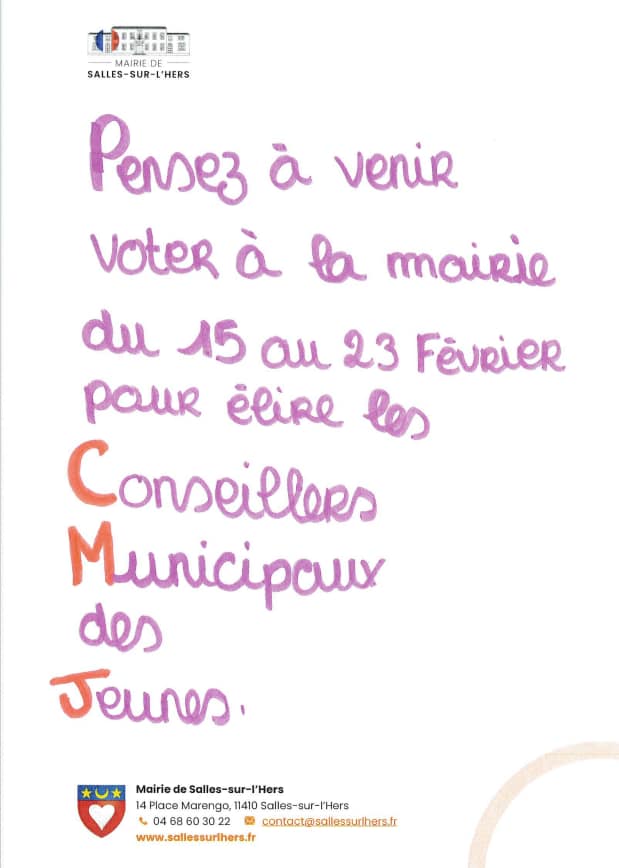 MAIRIE DE
SALLES-SUR-L'HERS
Pensez à venir
voter à la mairie
du 15 au 23 Février
pour élire les
Conseillers
Municipaux
des
Jeunes.
Mairie de Salles-sur-l'Hers
14 Place Marengo, 11410 Salles-sur-l'Hers
04 68 60 30 22 contact@sallessurlhers.fr
www.sallessurlhers.fr